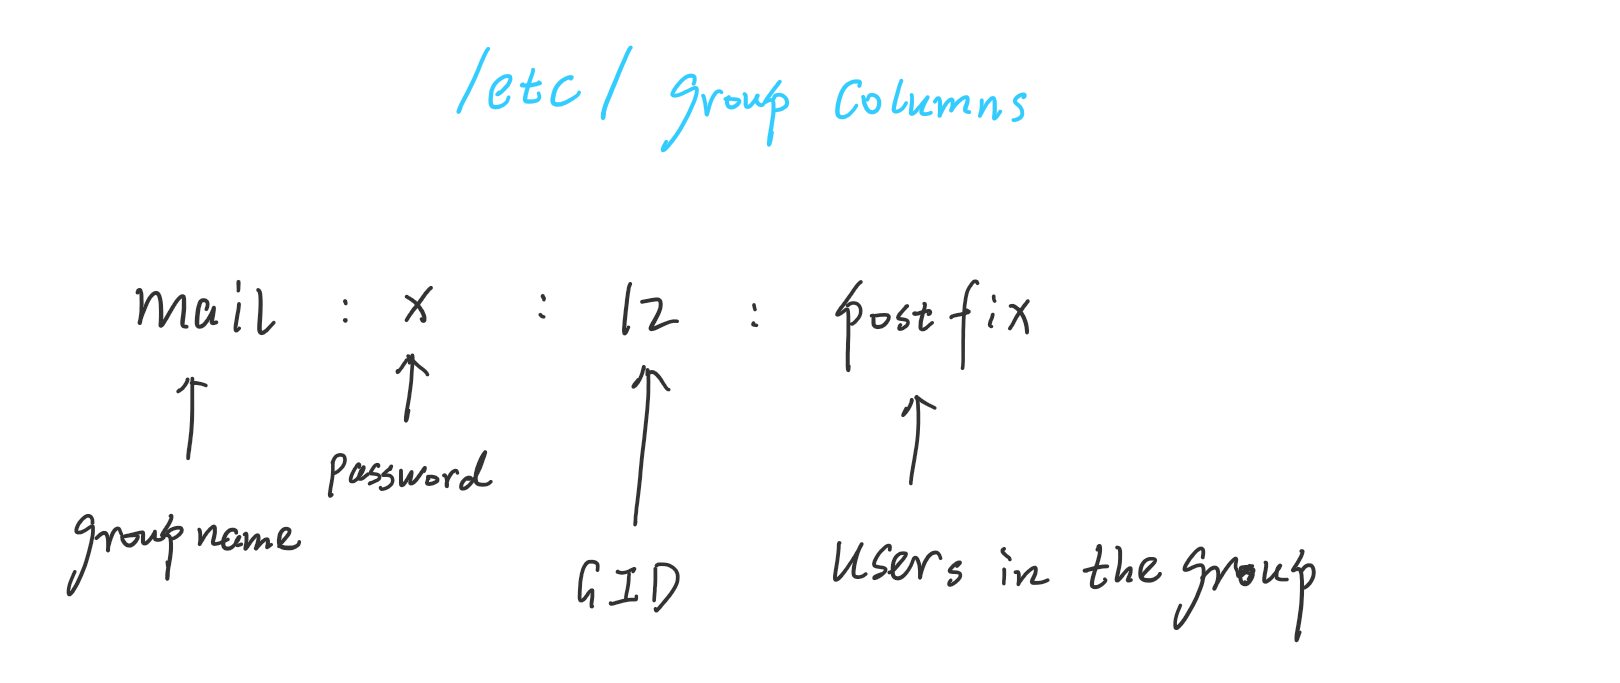 /etc/ group Columns
mail : x : 12 : postfix
group name
password
GID
users in the group